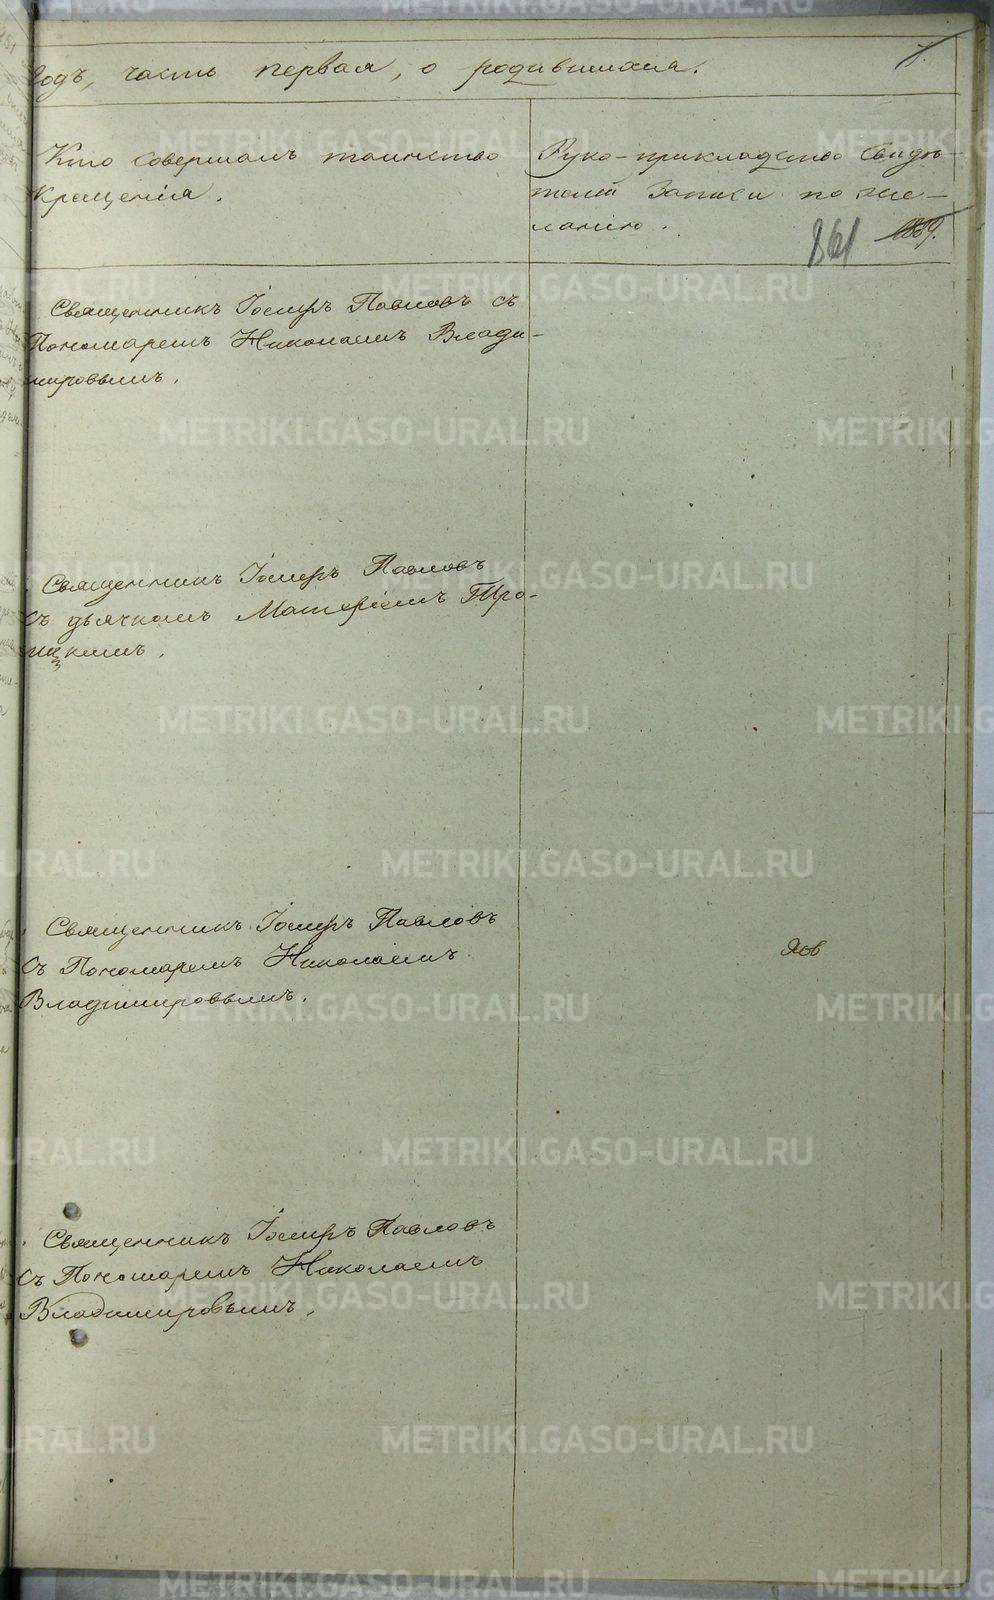 годъ, часть первая, о родившихся.
7.
Кто совершалъ таинство
крещенія.
Руко-прикладство свидѣ-
телей записи по же-
ланію.
861
Священникъ Іосифъ Павловъ съ
Пономаремъ Николаемъ Влади-
мировымъ.
Священникъ Іосифъ Павловъ
съ дьячкомъ Матфіемъ Тро-
ицкимъ.
Священникъ Іосифъ Павловъ
съ Пономаремъ Николаемъ
Владимировымъ.
Священникъ Іосифъ Павловъ
съ Пономаремъ Николаемъ
Владимировымъ.
METRIKI.GASO-URAL.RU